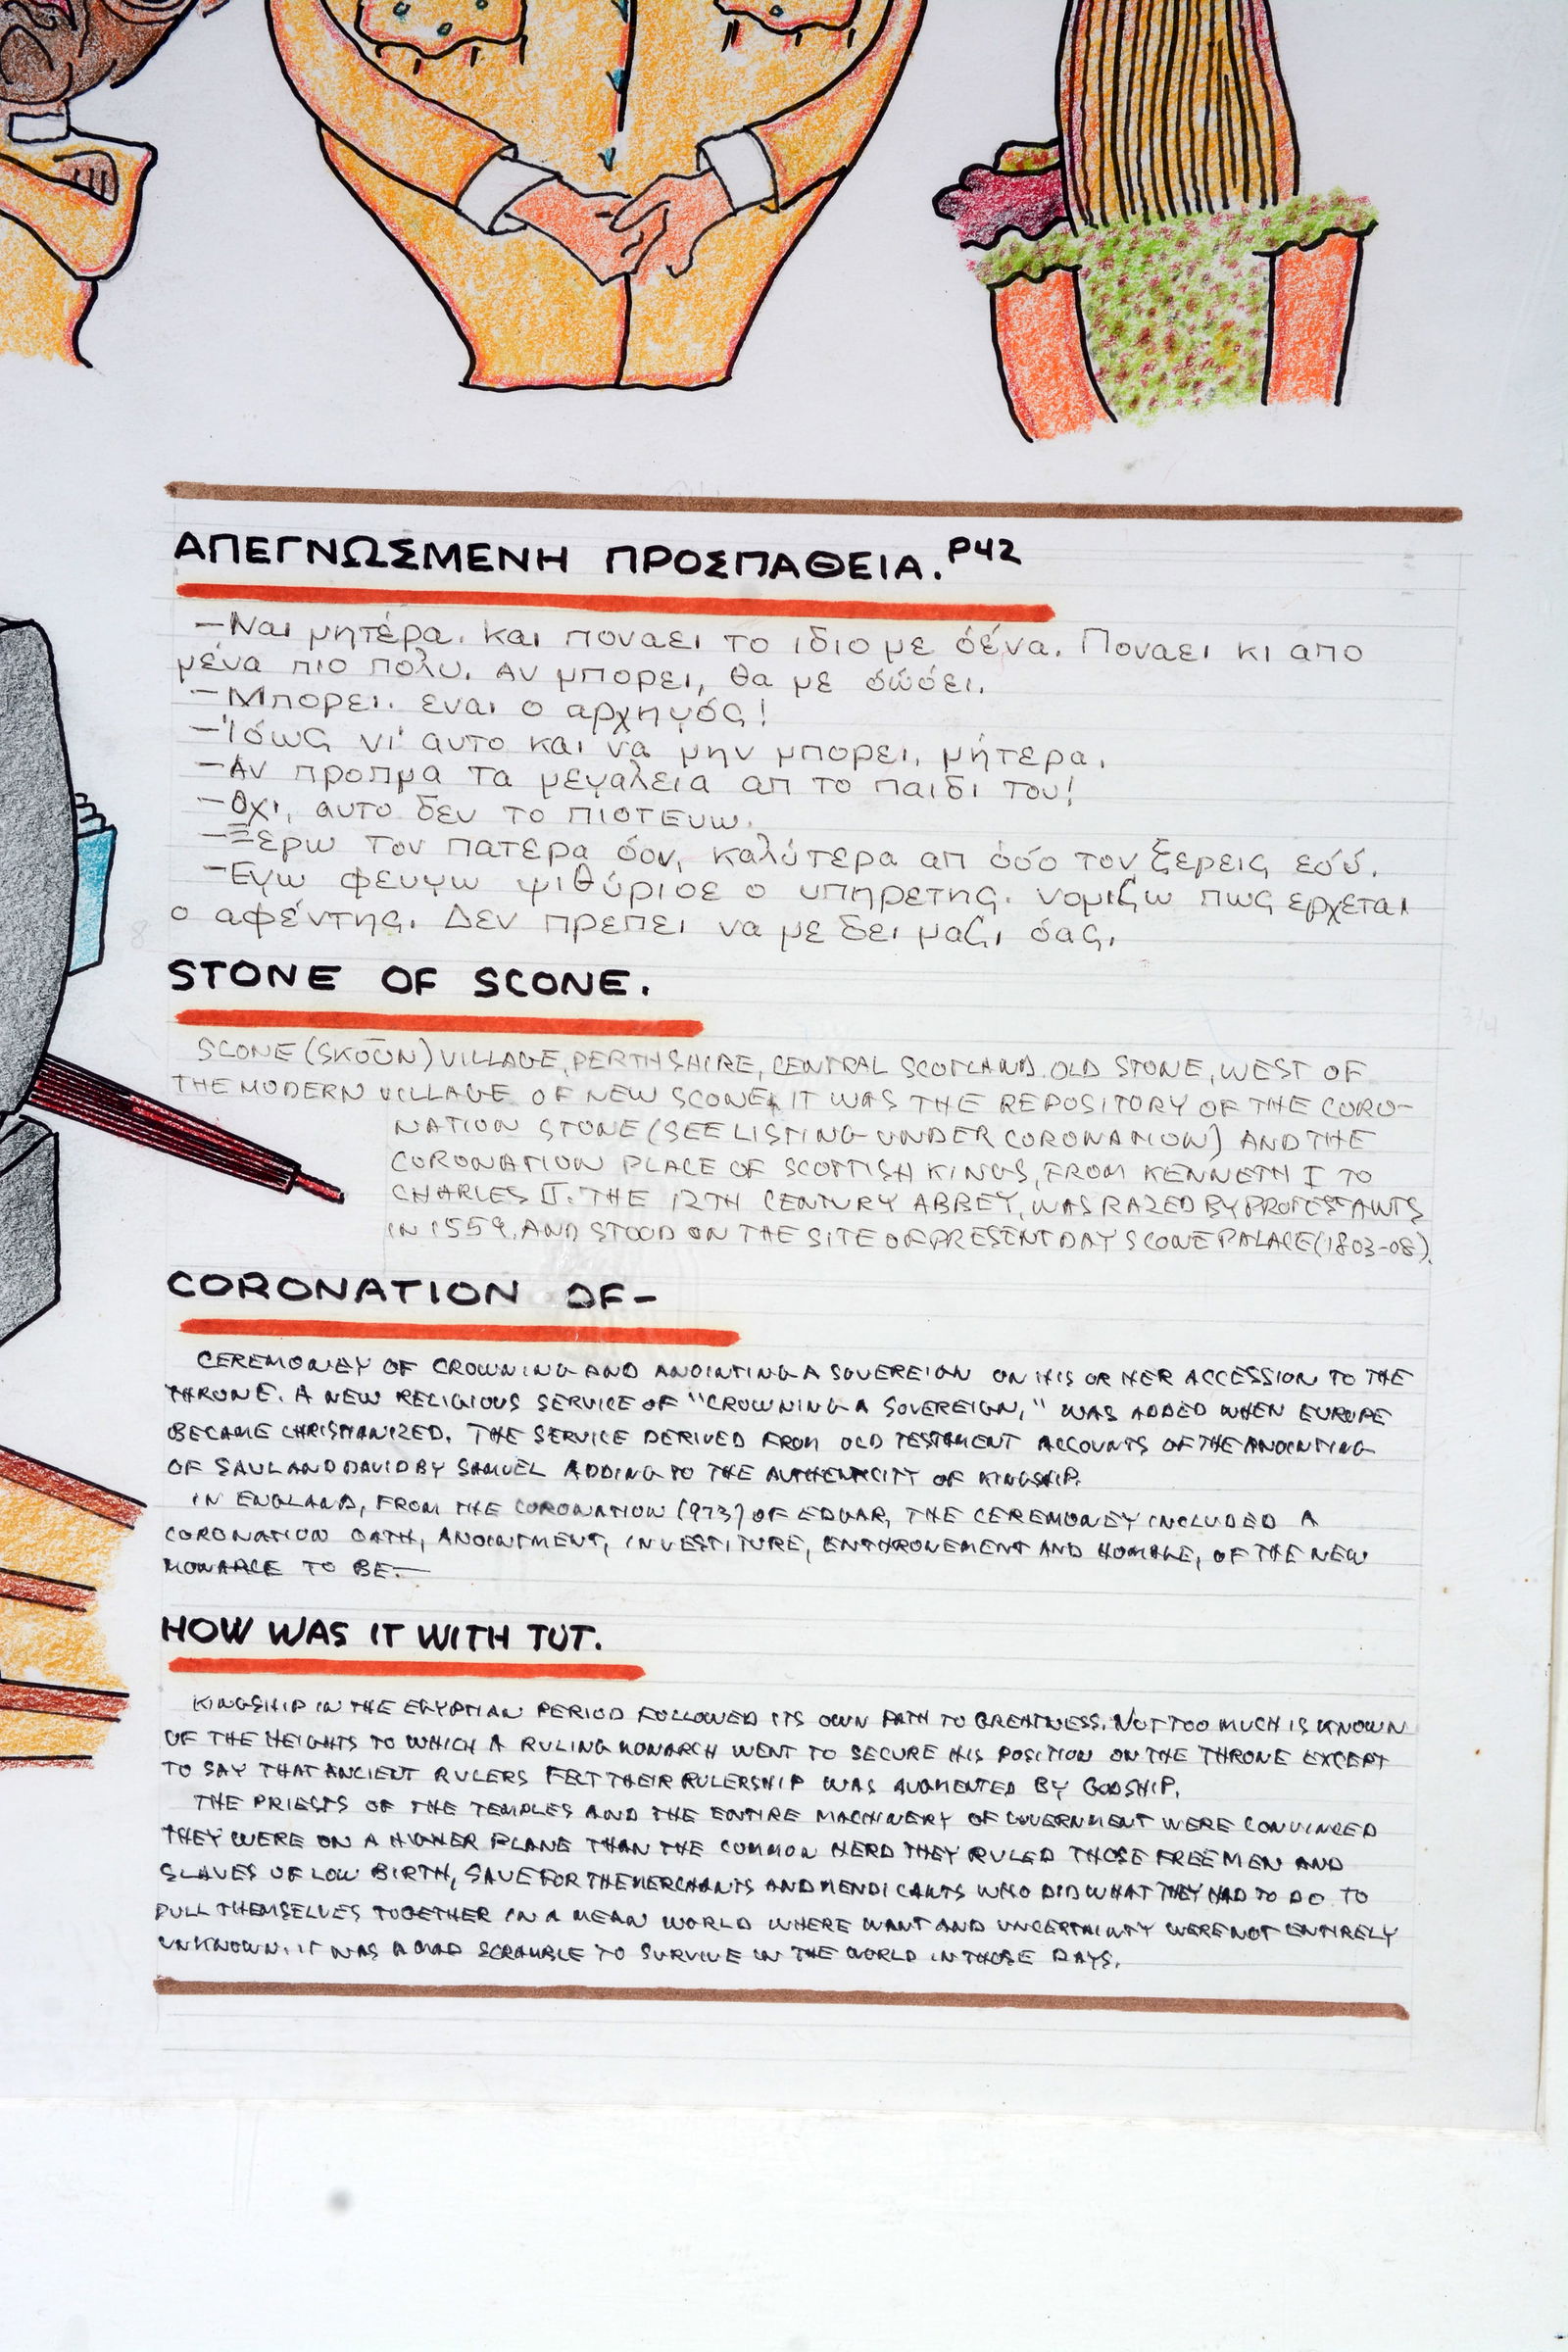 ΑΠΕΓΝΩΣΜΕΝΗ ΠΡΟΣΠΑΘΕΙΑ. P42
—Ναι μητέρα. και ποναει το ιδιο με σένα. Ποναει κι απο
μένα πιο πολυ. Αν μπορει, θα με σώσει.
—Μπορει. εναι ο αρχηγός!
—Ίσως γι' αυτο και να μην μπορει, μήτερα.
—Αν προπμα τα μεγαλεια απ το παιδι του!
—Οχι, αυτο δεν το πιστευω.
—Ξερω τον πατερα σου, καλύτερα απ όσο τον ξερεις εσύ.
—Εγω φευγω ψιθύρισε ο υπηρετης. νομιζω πως ερχεται
ο αφέντης. Δεν πρεπει να με δει μαζι σας.
STONE OF SCONE.
SCONE (SKOŌN) VILLAGE, PERTHSHIRE, CENTRAL SCOTLAND. OLD STONE, WEST OF
THE MODERN VILLAGE OF NEW SCONE, IT WAS THE REPOSITORY OF THE CORO-
NATION STONE (SEE LISTING UNDER CORONATION) AND THE
CORONATION PLACE OF SCOTTISH KINGS, FROM KENNETH I TO
CHARLES II. THE 12TH CENTURY ABBEY, WAS RAZED BY PROTESTANTS
IN 1559, AND STOOD ON THE SITE OF PRESENT DAY SCONE PALACE (1803-08).
CORONATION OF-
CEREMONEY OF CROWNING AND ANOINTING A SOVEREIGN ON HIS OR HER ACCESSION TO THE
THRONE. A NEW RELIGIOUS SERVICE OF "CROWNING A SOVEREIGN," WAS ADDED WHEN EUROPE
BECAME CHRISTIANIZED. THE SERVICE DERIVED FROM OLD TESTAMENT ACCOUNTS OF THE ANOINTING
OF SAUL AND DAVID BY SAMUEL ADDING TO THE AUTHENTICITY OF KINGSHIP.
IN ENGLAND, FROM THE CORONATION (973) OF EDGAR, THE CEREMONEY INCLUDED A
CORONATION OATH, ANOINTMENT, INVESTITURE, ENTHRONEMENT AND HOMAGE, OF THE NEW
MONARCH TO BE.—
HOW WAS IT WITH TUT.
KINGSHIP IN THE EGYPTIAN PERIOD FOLLOWED ITS OWN PATH TO GREATNESS. NOT TOO MUCH IS KNOWN
OF THE HEIGHTS TO WHICH A RULING MONARCH WENT TO SECURE HIS POSITION ON THE THRONE EXCEPT
TO SAY THAT ANCIENT RULERS FELT THEIR RULERSHIP WAS AUGMENTED BY GODSHIP.
THE PRIESTS OF THE TEMPLES AND THE ENTIRE MACHINERY OF GOVERNMENT WERE CONVINCED
THEY WERE ON A HIGHER PLANE THAN THE COMMON HERD THEY RULED THOSE FREEMEN AND
SLAVES OF LOW BIRTH, SAVE FOR THE MERCHANTS AND MENDICANTS WHO DID WHAT THEY HAD TO DO TO
PULL THEMSELVES TOGETHER IN A MEAN WORLD WHERE WANT AND UNCERTAINTY WERE NOT ENTIRELY
UNKNOWN. IT WAS A MAD SCRAMBLE TO SURVIVE IN THE WORLD IN THOSE DAYS.